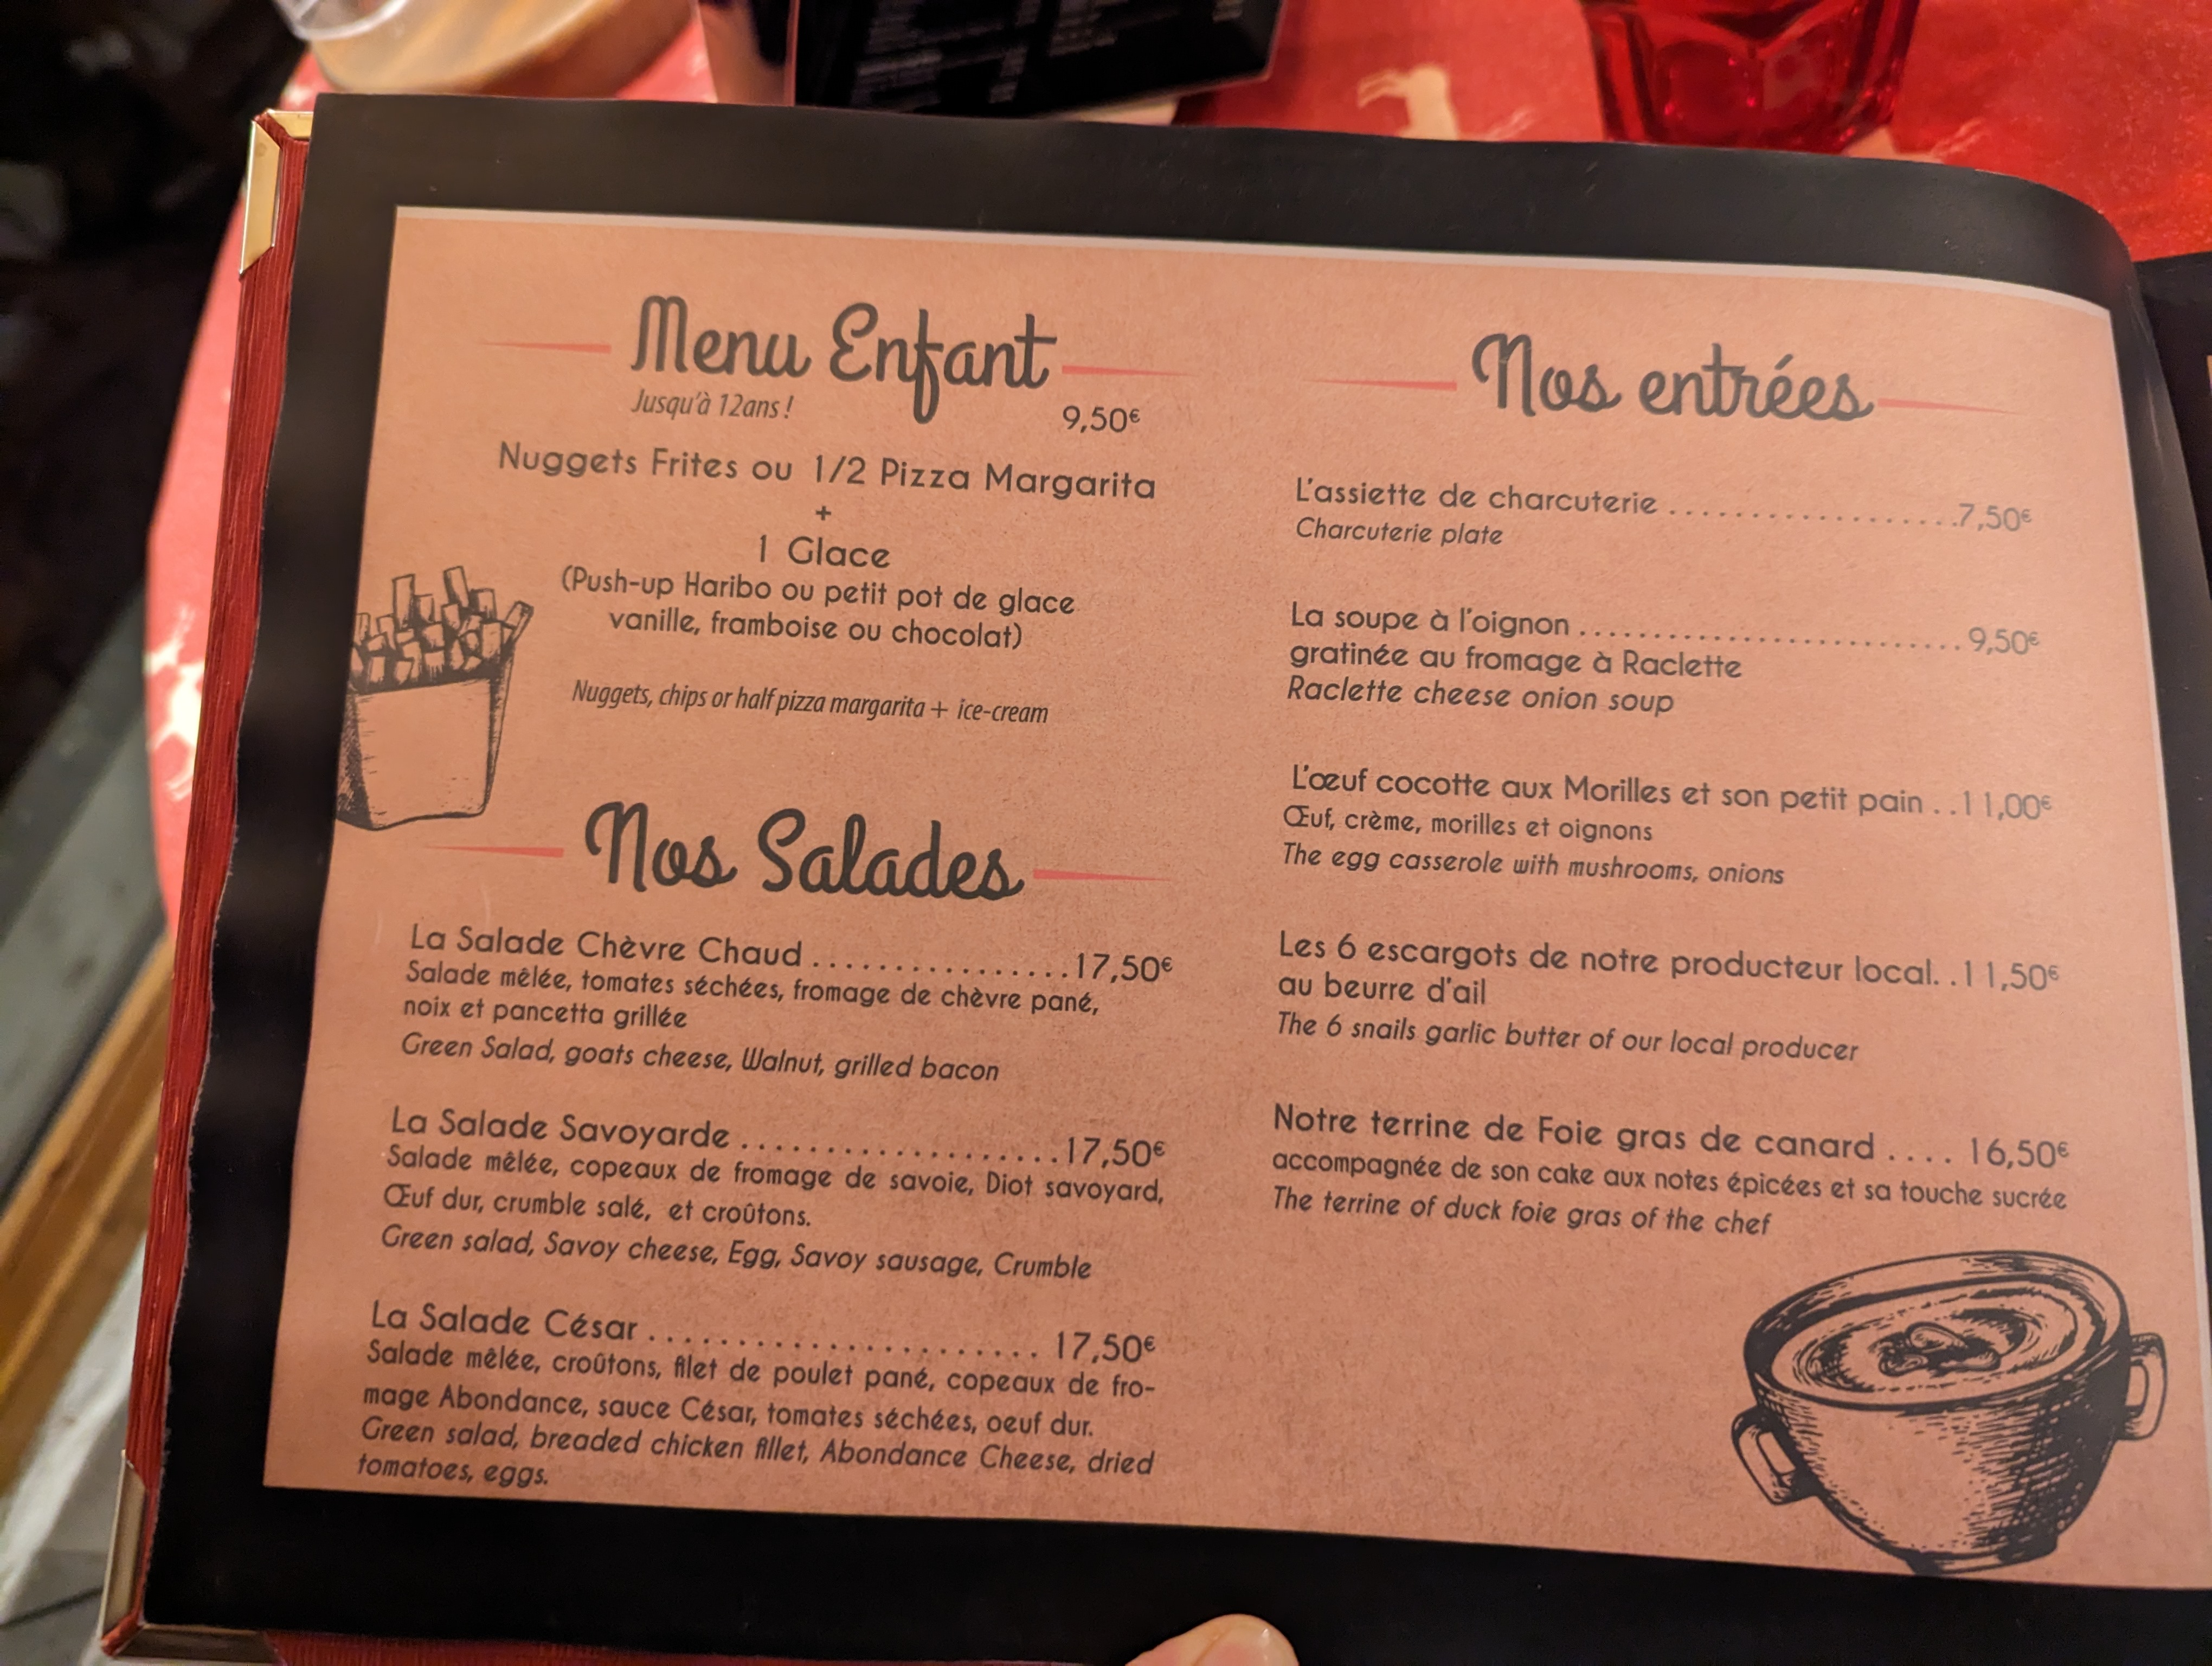 Menu Enfant
Jusqu'à 12ans !
9,50€
Nuggets Frites ou 1/2 Pizza Margarita
+
1 Glace
(Push-up Haribo ou petit pot de glace
vanille, framboise ou chocolat)
Nuggets, chips or half pizza margarita + ice-cream
Nos Salades
La Salade Chèvre Chaud ................17,50€
Salade mêlée, tomates séchées, fromage de chèvre pané,
noix et pancetta grillée
Green Salad, goats cheese, Walnut, grilled bacon
La Salade Savoyarde ...................17,50€
Salade mêlée, copeaux de fromage de savoie, Diot savoyard,
Œuf dur, crumble salé, et croûtons.
Green salad, Savoy cheese, Egg, Savoy sausage, Crumble
La Salade César ....................... 17,50€
Salade mêlée, croûtons, filet de poulet pané, copeaux de fro-
mage Abondance, sauce César, tomates séchées, oeuf dur.
Green salad, breaded chicken fillet, Abondance Cheese, dried
tomatoes, eggs.
Nos entrées
L'assiette de charcuterie ..................7,50€
Charcuterie plate
La soupe à l'oignon ........................ 9,50€
gratinée au fromage à Raclette
Raclette cheese onion soup
L'œuf cocotte aux Morilles et son petit pain ..11,00€
Œuf, crème, morilles et oignons
The egg casserole with mushrooms, onions
Les 6 escargots de notre producteur local. .11,50€
au beurre d'ail
The 6 snails garlic butter of our local producer
Notre terrine de Foie gras de canard .... 16,50€
accompagnée de son cake aux notes épicées et sa touche sucrée
The terrine of duck foie gras of the chef